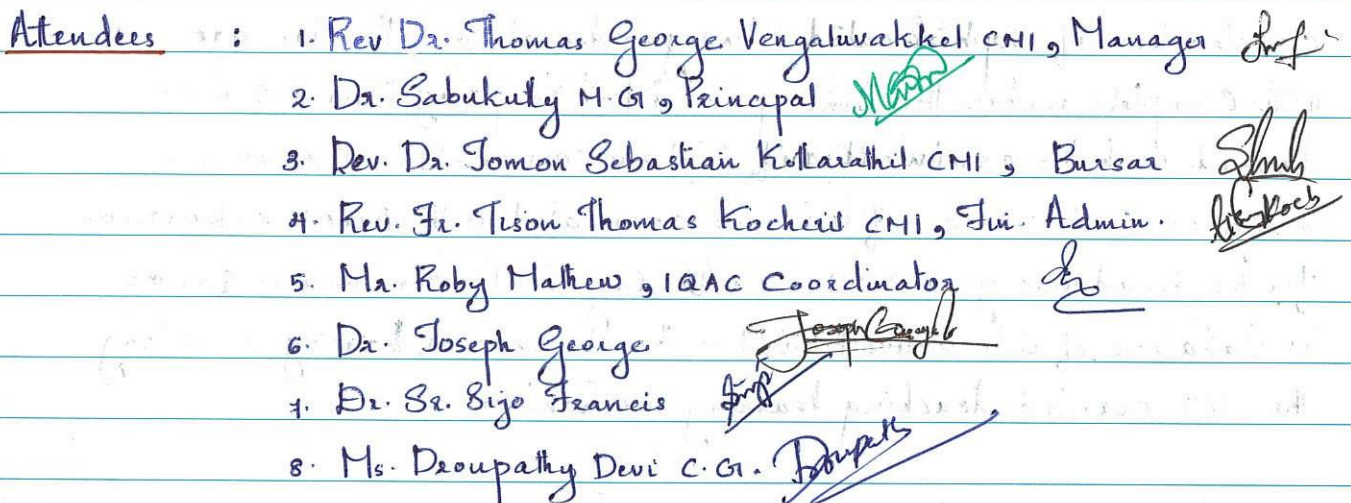 Attendees : 1. Rev Dr. Thomas George Vengaluvakkel CMI, Manager
2. Dr. Sabukutty M.G, Principal
3. Rev. Dr. Jomon Sebastian Kottarathil CMI, Bursar
4. Rev. Fr. Tison Thomas Kocheril CMI, Fin. Admin.
5. Mr. Roby Mathew, IQAC Coordinator
6. Dr. Joseph George Joseph George
7. Dr. Sr. Sijo Francis
8. Ms. Droupathy Devi C.G. Droupathy